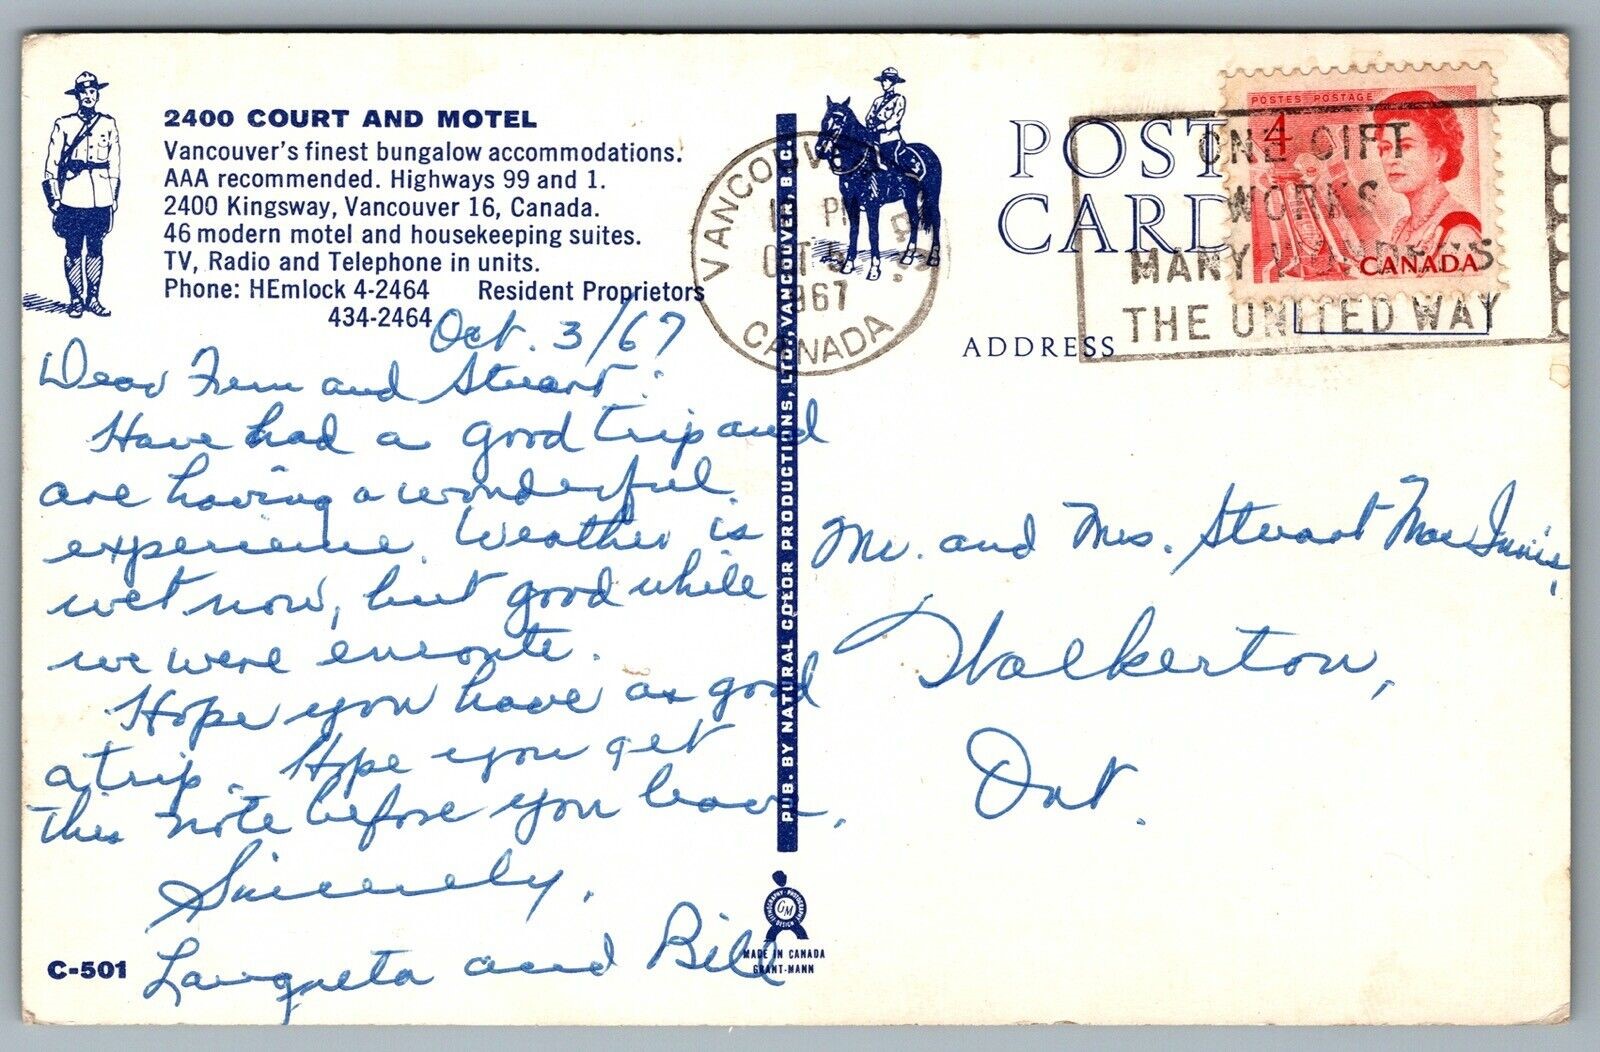 2400 COURT AND MOTEL
Vancouver's finest bungalow accommodations.
AAA recommended. Highways 99 and 1.
2400 Kingsway, Vancouver 16, Canada.
46 modern motel and housekeeping suites.
TV, Radio and Telephone in units.
Phone: HEmlock 4-2464 Resident Proprietors
434-2464
Oct. 3/67
Dear Fern and Stuart:
Have had a good trip and
are having a wonderful
experience. Weather is
wet now, but good while
we were enroute.
Hope you have as good
a trip. Hope you get
this note before you leave.
Sincerely,
and Bill
C-501
PUB. BY NATURAL COLOR PRODUCTIONS, LTD., VANCOUVER, B.C.
GM
MADE IN CANADA
GRANT-MANN
POST
CARD
ADDRESS
VANCOUVER
PM
OCT
1967
CANADA
ONE GIFT
WORKS
MANY WONDERS
THE UNITED WAY
POSTES POSTAGE
4
CANADA
Mr. and Mrs. Stuart MacInnis,
Walkerton,
Ont.